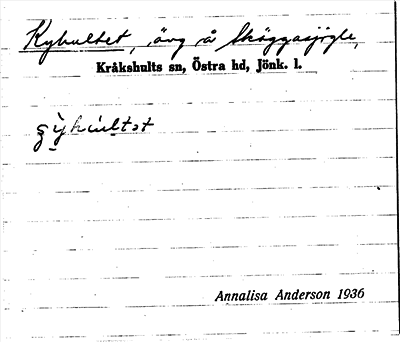 Kyhultet, ävg å Skäggasjögle,
Kråkshults sn, Östra hd, Jönk. l.
Annalisa Anderson 1936